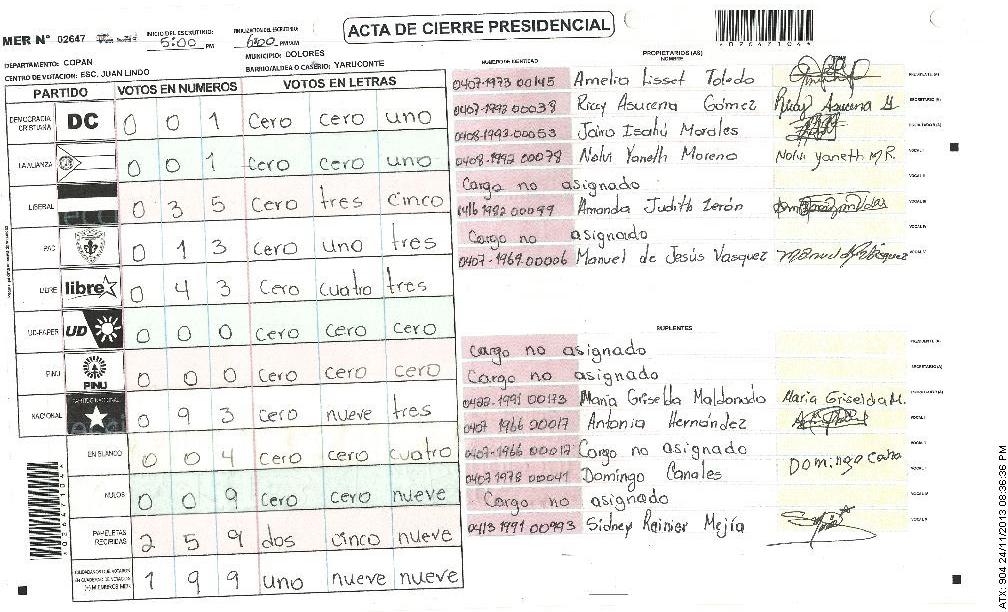 ACTA DE CIERRE PRESIDENCIAL
MER N° 02647
INICIO DEL ESCRUTINIO: 5:00 PM
FINALIZACION DEL ESCRUTINIO: 6:00 PM/AM
DEPARTAMENTO: COPAN
MUNICIPIO: DOLORES
CENTRO DE VOTACION: ESC. JUAN LINDO
BARRIO/ALDEA O CASERIO: YARUCONTE
PARTIDO VOTOS EN NUMEROS VOTOS EN LETRAS
DEMOCRACIA CRISTIANA DC 0 0 1 Cero cero uno
LA ALIANZA 0 0 1 Cero cero uno
LIBERAL 0 3 5 Cero tres cinco
PAC 0 1 3 Cero uno tres
LIBRE libre 0 4 3 Cero cuatro tres
UD-FAPER UD 0 0 0 Cero cero cero
PINU PINU 0 0 0 Cero cero cero
NACIONAL PARTIDO NACIONAL 0 9 3 cero nueve tres
EN BLANCO 0 0 4 cero cero cuatro
NULOS 0 0 9 cero cero nueve
PAPELETAS RECIBIDAS 2 5 9 dos cinco nueve
CIUDADANOS QUE VOTARON EN CUADERNO DE VOTACION (+) MIEMBROS MER 1 9 9 uno nueve nueve
NUMERO DE IDENTIDAD PROPIETARIOS (AS) NOMBRE
0407-1973 00145 Amelia Lisset Toledo PRESIDENTE (A)
0407-1993 00038 Riccy Asucena Gómez Riccy Asucena G SECRETARIO (A)
0408-1993-00053 Jairo Isahú Morales ESCRUTADOR (A)
0408-1992 00078 Nolvi Yaneth Moreno Nolvi yaneth M R. VOCAL I
Cargo no asignado VOCAL II
1416 1982 00099 Amanda Judith Zerón VOCAL III
Cargo no asignado VOCAL IV
0407-1969-00006 Manuel de Jesús Vasquez VOCAL V
SUPLENTES
Cargo no asignado PRESIDENTE (A)
Cargo no asignado SECRETARIO (A)
0422-1991 00173 María Griselda Maldonado Maria Griselda M. ESCRUTADOR (A)
0407 1966 00017 Antonia Hernández VOCAL I
0407-1966 00017 Cargo no asignado
0407 1978 00041 Domingo Canales Domingo Cana
Cargo no asignado
0413 1991 00993 Sidney Rainier Mejía
ATX: 904 24/11/2013 08:36:36 PM